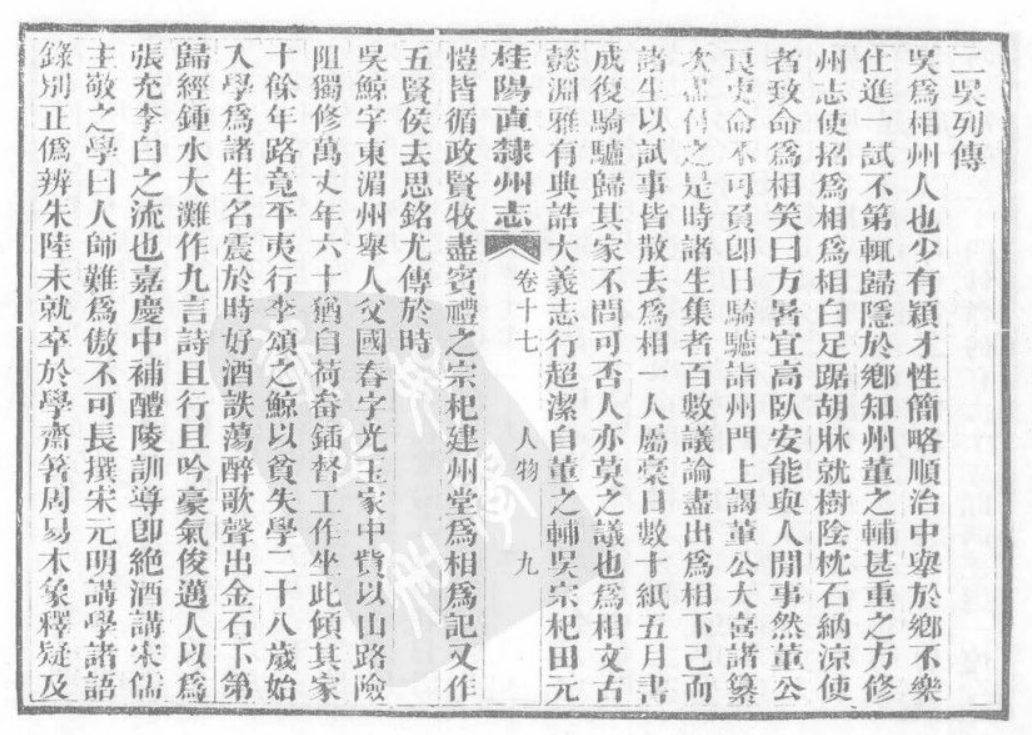 二吳列傳
吳爲相州人也少有穎才性簡略順治中舉於鄉不樂
仕進一試不第輒歸隱於鄉知州董之輔甚重之方修
州志使招爲相爲相白足踞胡牀就樹陰枕石納涼使
者致命爲相笑曰方暑宜高臥安能與人閒事然董公
良吏命不可負卽日騎驢詣州門上謁董公大喜諸纂
次盡付之是時諸生集者百數議論盡出爲相下己而
諸生以試事皆散去爲相一人屬槀日數十紙五月書
成復騎驢歸其家不問可否人亦莫之議也爲相文古
懿淵雅有典誥大義志行超潔自董之輔吳宗杞田元
桂陽直隸州志 卷十七 人物 九
愷皆循政賢牧盡賓禮之宗杞建州堂爲相爲記又作
五賢侯去思銘尤傳於時
吳鯨字東湄州舉人父國春字光玉家中貲以山路險
阻獨修萬丈年六十猶自荷畚鍤督工作坐此傾其家
十餘年路竟平夷行李頌之鯨以貧失學二十八歲始
入學爲諸生名震於時好酒詄蕩醉歌聲出金石下第
歸經鍾水大灘作九言詩且行且吟豪氣俊邁人以爲
張充李白之流也嘉慶中補醴陵訓導卽絶酒講宋儒
主敬之學曰人師難爲傲不可長撰宋元明講學諸語
錄別正僞辨朱陸未就卒於學齋箸周易本象釋疑及